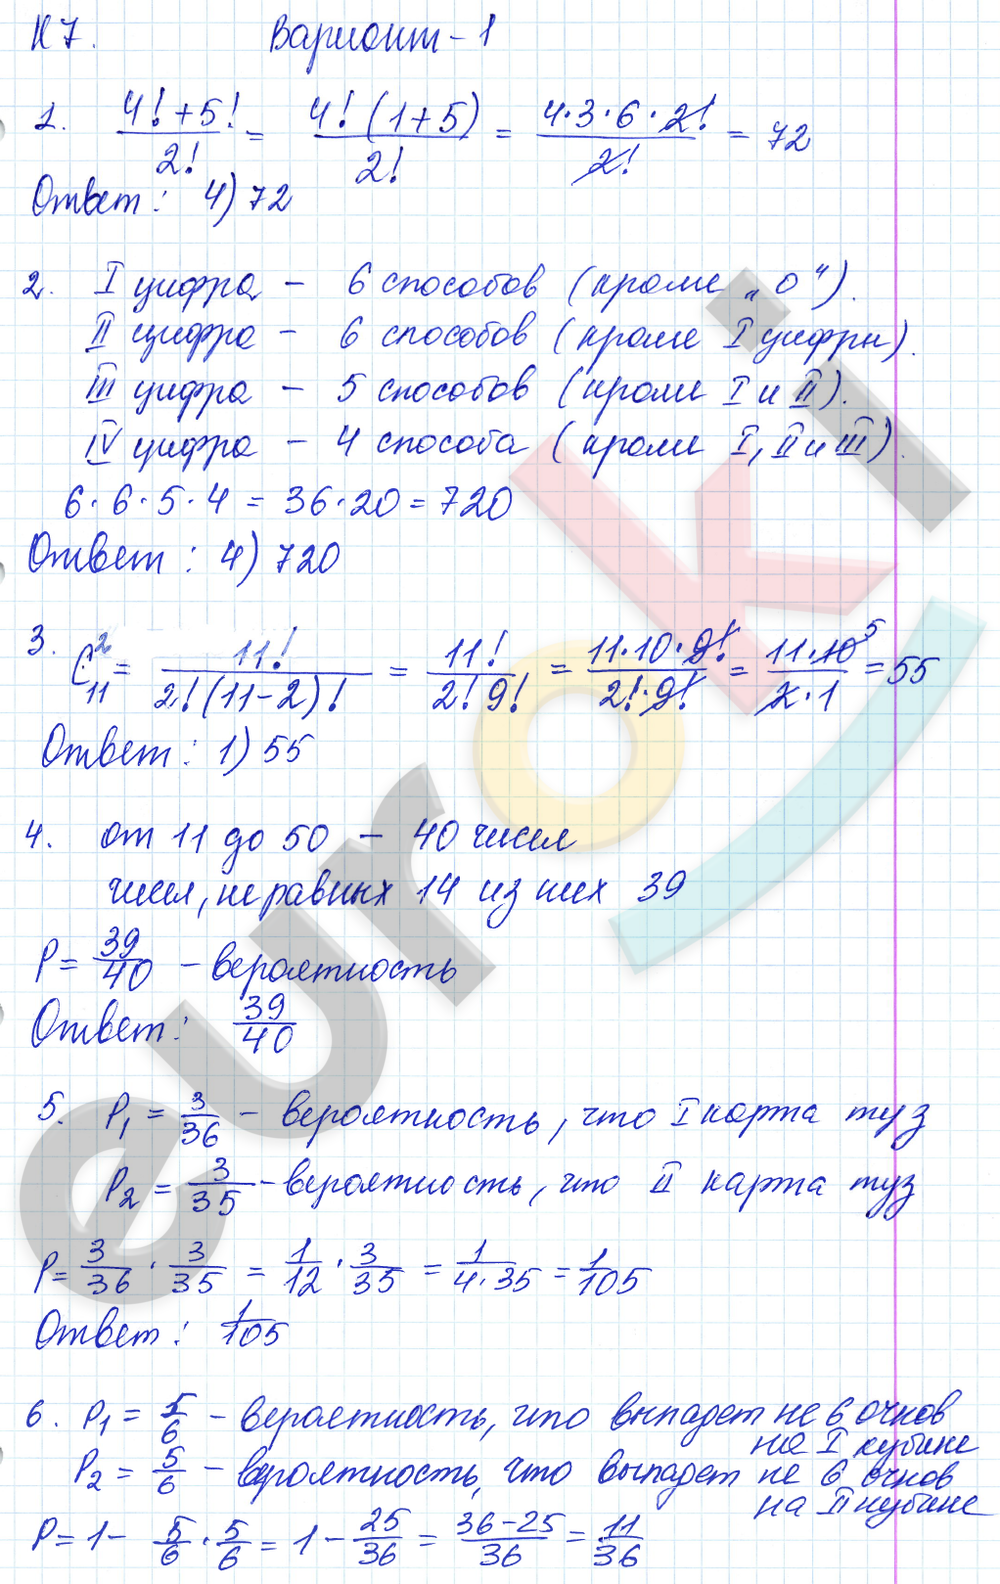 К7. Вариант-1
1. (4!+5!)/2! = (4!(1+5))/2! = (4·3·6·2!)/2! = 72
Ответ: 4) 72
2. I цифра – 6 способов (кроме „0“).
II цифра – 6 способов (кроме I цифры).
III цифра – 5 способов (кроме I и II).
IV цифра – 4 способа (кроме I, II и III).
6·6·5·4 = 36·20 = 720
Ответ: 4) 720
3. C₁₁² = 11!/(2!(11-2)!) = 11!/(2! 9!) = (11·10·9!)/(2!·9!) = (11·10 5)/(2·1) = 55
Ответ: 1) 55
4. от 11 до 50 – 40 чисел
чисел, не равных 14 из них 39
P = 39/40 – вероятность
Ответ: 39/40
5. P₁ = 3/36 – вероятность, что I карта туз
P₂ = 3/35 – вероятность, что II карта туз
P = 3/36 · 3/35 = 1/12 · 3/35 = 1/(4·35) = 1/105
Ответ: 1/105
6. P₁ = 5/6 – вероятность, что выпадет не 6 очков
на I кубике
P₂ = 5/6 – вероятность, что выпадет не 6 очков
на II кубике
P = 1 - 5/6 · 5/6 = 1 - 25/36 = (36-25)/36 = 11/36
euroki